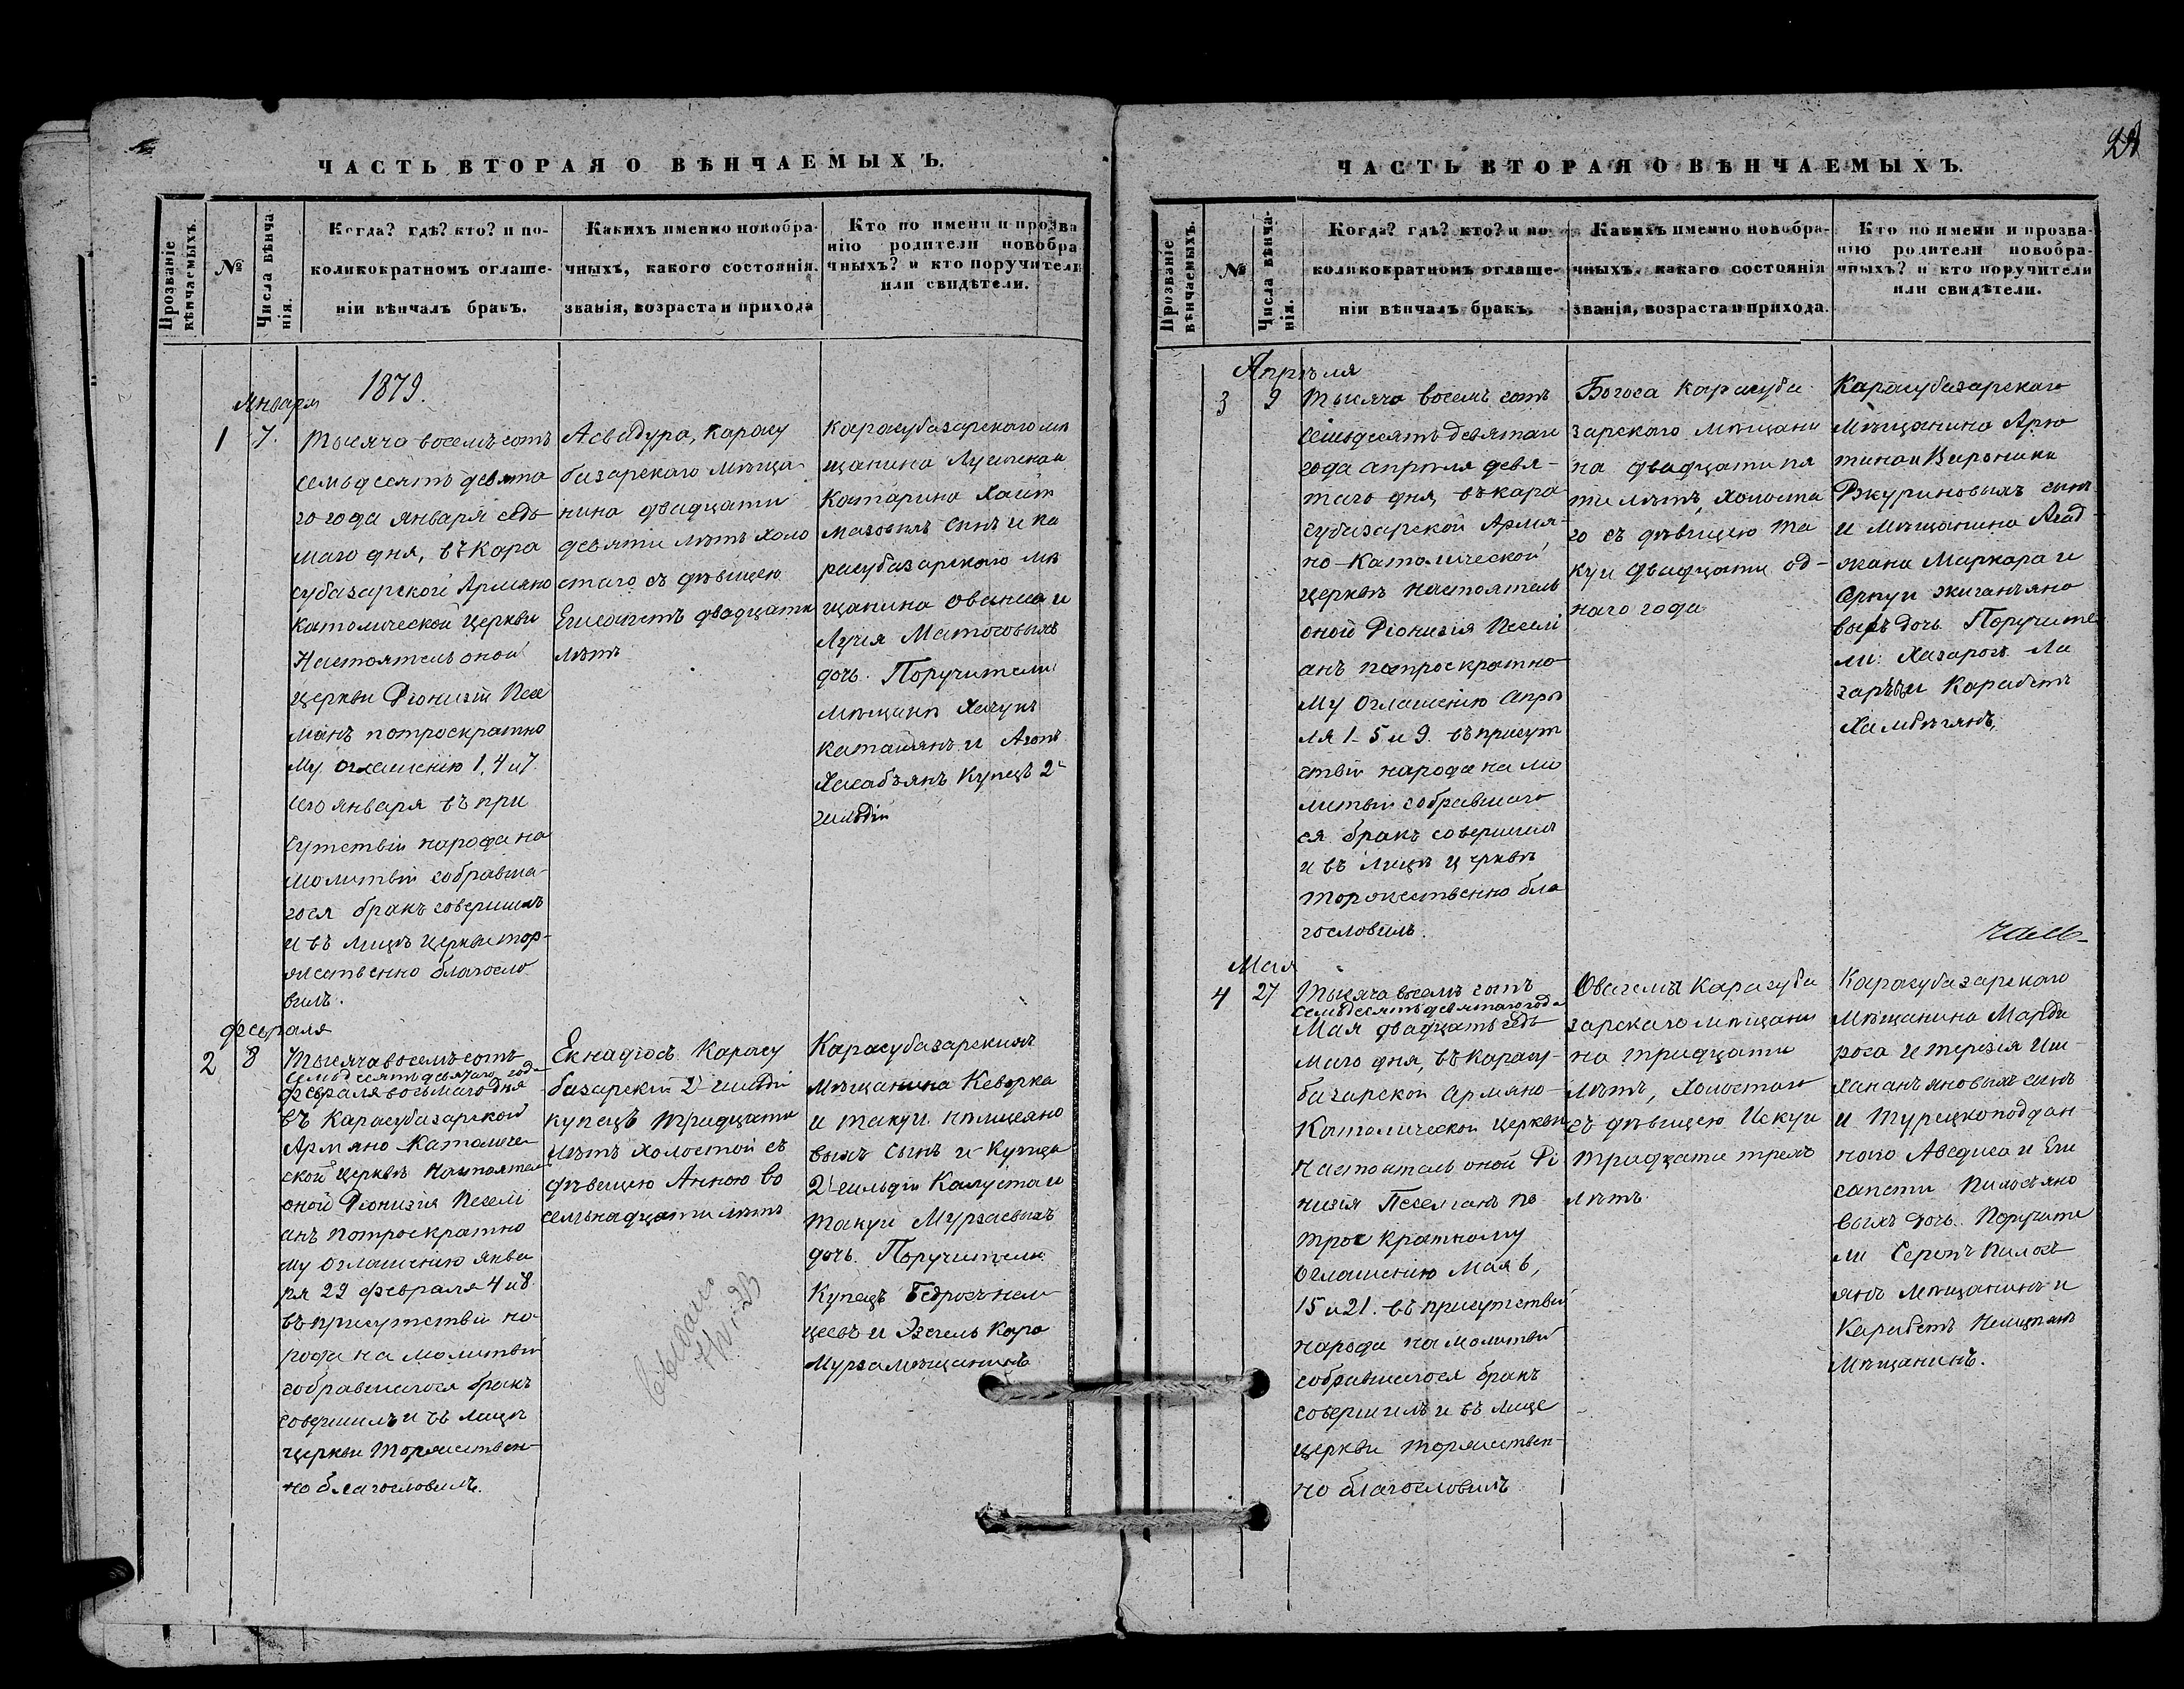 ЧАСТЬ ВТОРАЯ О ВѢНЧАЕМЫХЪ.
Прозваніе вѣнчаемыхъ.
№
Числа вѣнчанія.
Когда? гдѣ? кто? и по-
коликократномъ оглаше-
ніи вѣнчалъ бракъ.
Какихъ именно новобра-
чныхъ, какого состоянія.
званія, возраста и прихода
Кто по имени и прозва
нію родители новобра
чныхъ? и кто поручители
или свидѣтели.
1879.
Января
1
7.
Тысяча восемъ сотъ
семьдесятъ девята
го года января седь
маго дня, въ Кара
субазарской Армяно
католической церкви
Настоятель оной
церкви Діонизій
манъ потроекратно
му оглашенію 1, 4 и 7
сего января въ при
сутствіи народа на
молитвы собравша-
гося бракъ совершилъ
и въ лицѣ церкви тор-
жественно благосло
вилъ.
Асвадура, Карасу
базарскаго мѣща
нина двадцати
девяти лѣтъ холо
стаго съ дѣвицею
Егисапетъ двадцати
лѣтъ
Карасубазарскаго мѣ
щанина
Катарина
сынъ и Ка
расубазарскаго мѣ
щанина Ованеса и
Лучія Матосовыхъ
дочь. Поручители
мѣщанъ
и
Купецъ 2й
гильдіи
февраля
2
8
Тысяча восемъ сотъ
семьдесятъ девятаго года
февраля восьмаго дня
въ Карасубазарской
Армяно Католиче
ской церквѣ Настоятель
оной Діонизія Песелі
анъ потроекратно
му оглашенію янва
ря 29 февраля 4 и 8
въ присутствіи на-
рода на молитвы
собравшагося бракъ
совершилъ и въ лицѣ
церкви торжествен-
но благословилъ.
Екнадіосъ Карасу
базарскій 2й гильдіи
купецъ тридцати
лѣтъ холостой съ
дѣвицею Анною во
семьнадцати лѣтъ
Карасубазарскихъ
мѣщанина Кеворка
и Такуи
выхъ сынъ и Купца
2й гильдіи Калуста и
Такуи Мурзаевыхъ
дочь. Поручители
Купецъ Бедросъ нем
цевъ и Кара
Мурза мѣщанинъ
ЧАСТЬ ВТОРАЯ О ВѢНЧАЕМЫХЪ.
Прозваніе вѣнчаемыхъ.
№
Числа вѣнча-нія.
Когда? гдѣ? кто? и по
коликократномъ оглаше-
ніи вѣнчалъ бракъ.
Какихъ именно новобра-
чныхъ, какаго состоянія
званія, возраста и прихода.
Кто по имени и прозва-
нію родители новобра-
чныхъ? и кто поручители
или свидѣтели.
Апрѣля
3
9
Тысяча восемъ сотъ
семьдесятъ девятаго
года апрѣля девя-
таго дня, въ кара
субазарской Армя-
но-Католической
церквѣ настоятель
оной Діонизія Песелі
анъ потроекратно
му оглашенію апрѣ
ля 1. 5 и 9. въ присут
ствіи народа на мо
литвы собравшаго
ся бракъ совершилъ
и въ лицѣ церквѣ
торжественно бла
гословилъ.
Богоса Карасуба
зарскаго мѣщани
на двадцати пя
ти лѣтъ, холоста
го съ дѣвицею Та
куи двадцати од-
наго года
Карасубазарскаго
мѣщанина Арю
тина и Вироники
сынъ
и мѣщанина Агад
жана Маркара и
выхъ дочь. Поручите
ли: Хазаросъ Ла
заръ и Карабетъ
Мая
4
27
Тысяча восемъ сотъ
семьдесятъ девятаго года
Мая двадцать седь
маго дня, въ Карасу-
базарской Армяно-
Католической церкви
Настоятель оной Ді
низія Песеліанъ по
трое кратному
оглашенію Мая 6,
15 и 21. въ присутствіи
народа на молитвы
собравшагося бракъ
совершилъ и въ лице
церкви торжествен-
но благословилъ
Карасуба
зарскаго мѣщани
на тридцати
лѣтъ, холостаго
съ дѣвицею Искуи
тридцати трехъ
лѣтъ.
Карасубазарскаго
мѣщанина Марди
роса и Терезія Иш-
ханъяновыхъ сынъ
и Турецкоподдан-
наго Аведиса и Еги
сапети Пилосъяно
выхъ дочь. Поручите
ли Серопъ Пилось
янъ мѣщанинъ и
Карабетъ
мѣщанинъ.